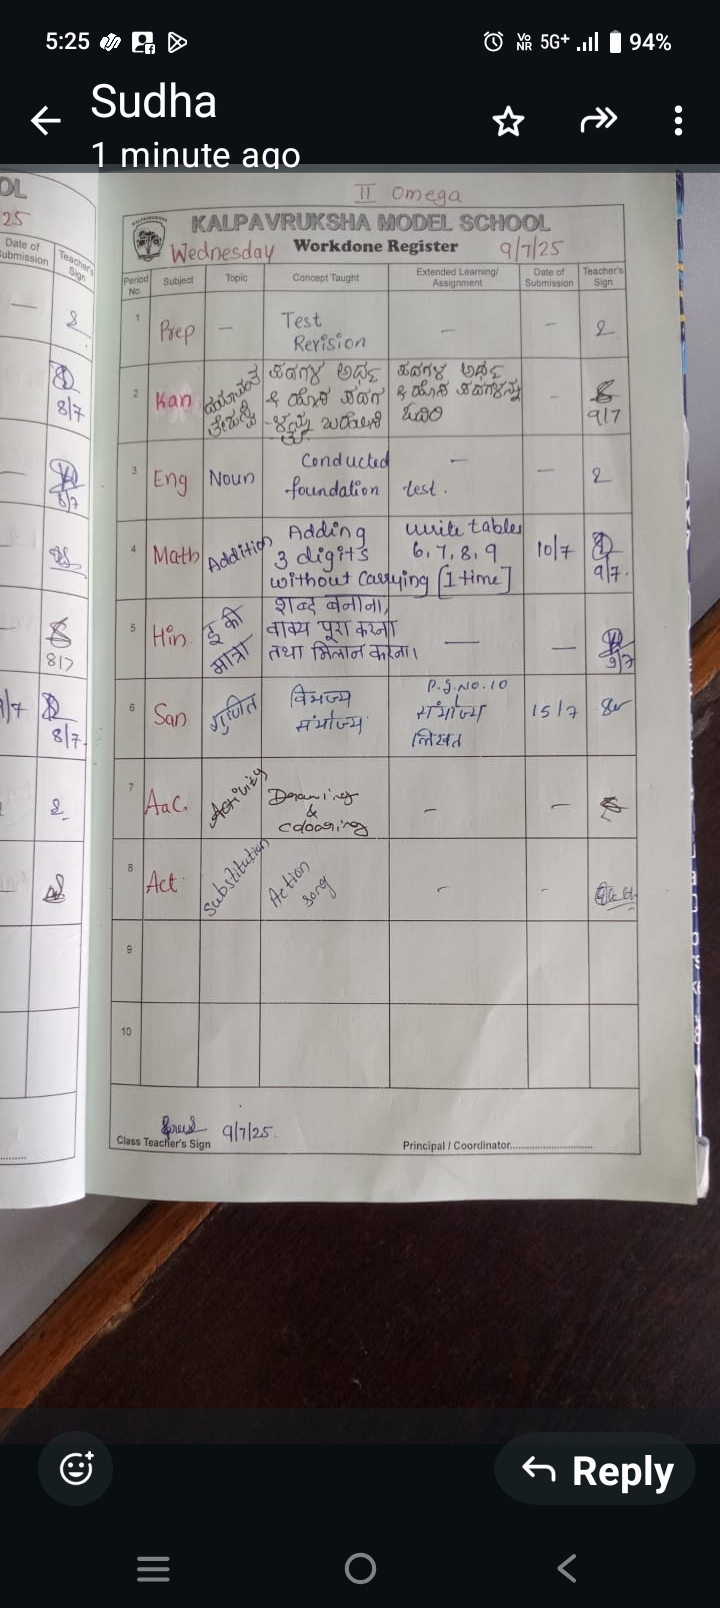 5:25
VoNR 5G+ 94%
Sudha
1 minute ago
OL
25
Date of Submission
Teacher's Sign
8/7
8/7
8/7
8/7
II Omega
KALPAVRUKSHA MODEL SCHOOL
Wednesday Workdone Register 9/7/25
Period No. Subject Topic Concept Taught Extended Learning/ Assignment Date of Submission Teacher's Sign
1 Prep – Test Revision – –
2 Kan ಪದಗಳ ಅರ್ಥ & ಹೊಸ ಪದಗಳನ್ನು ಪದಗಳ ಅರ್ಥ & ಹೊಸ ಪದಗಳನ್ನು ಓದಿರಿ - 9/7
3 Eng Noun Conducted foundation test. – –
4 Math Addition Adding 3 digits without Carrying write tables 6, 7, 8, 9 [1 time] 10/7 9/7.
5 Hin ू की मात्रा शब्द बनाना, वाक्य पूरा करना तथा मिलान करना। – – 9/7
6 San गुणित विभज्य संभोज्य P.g.No.10 संभोज्य लिखत 15/7
7 Aac. Activity Drawing & colouring – –
8 Act Substitution Action song - -
9
10
9/7/25.
Class Teacher's Sign
Principal / Coordinator
Reply